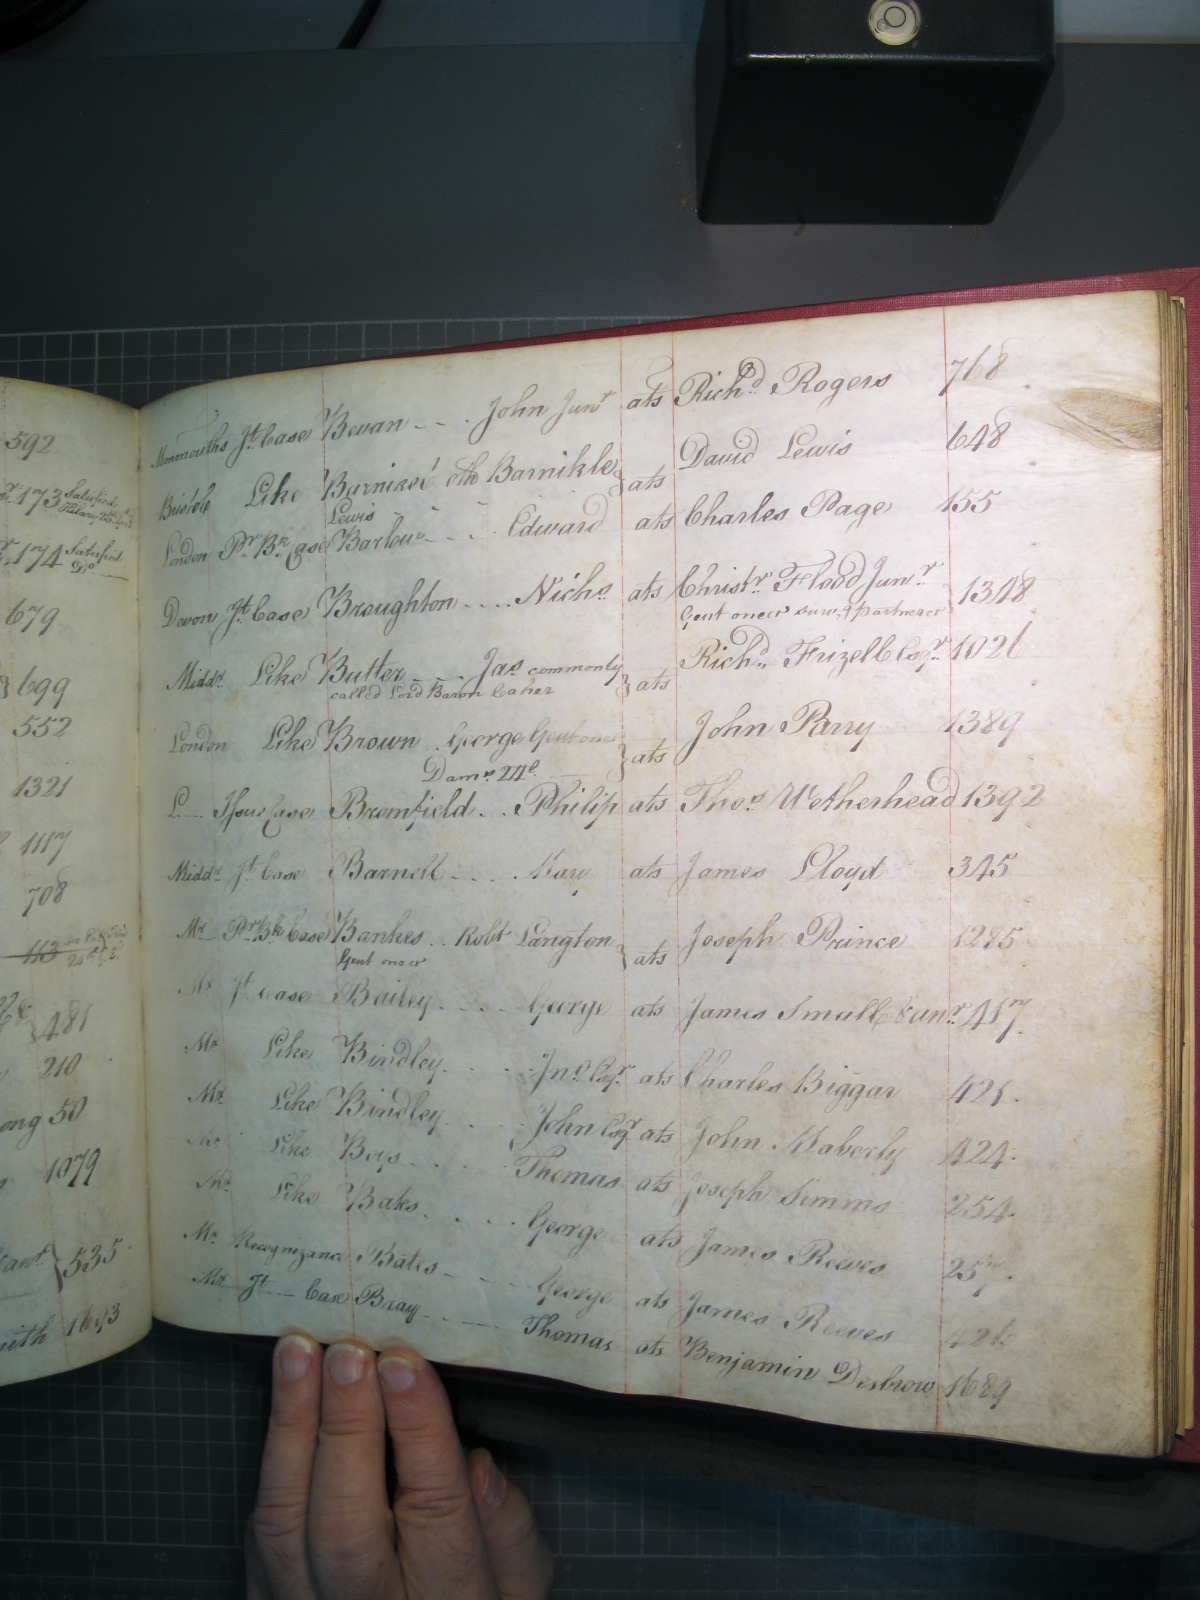 592
173 Satisfied
174 Satisfied
Do
679
699
552
1321
1117
708
113
481
210
50
1079
535
1693
Monmouths Jt. Case Bevan John Junr ats Richd. Rogers 768
Bristole Like Barnikel oth Barnikle } ats David Lewis 648
Lewis
London Pr. Bk. Case Barlow Edward ats Charles Page 155
Devon Jt. Case Broughton .... Nichs ats Christr Flood Junr 1348
Gent one &c surv. Partner &c
Middx. Like Butter Jas commonly } ats Richd. Frizell Esqr. 1021
called Lord Baron Caher
London Like Brown George Gent one } ats John Parry 1389
Dams. 24l.
L.... Issue Case Bromfield .. Philip ats Thos Wetherhead 1392
Middx. Jt. Case Barnell .... Mary ats James Lloyd 345
Mx Pr. Bk. Case Bankes .. Robt Langton } ats Joseph Prince 1285
Gent one &c
Mx Jt Case Bailey .... George ats James Small & anr. 417
Mx Like Bindley .... Jno. Esqr. ats Charles Biggar 421.
Mx Like Bindley .... John Esqr ats John Maberly 424.
Mx Like Boys .... Thomas ats Joseph Simms 254.
Mx Like Baks .... George ats James Reeves
Mx Recognizance Bates .... George ats James Reeves
Mx Jt. Case Bray .... Thomas ats Benjamin Desbrow 1689